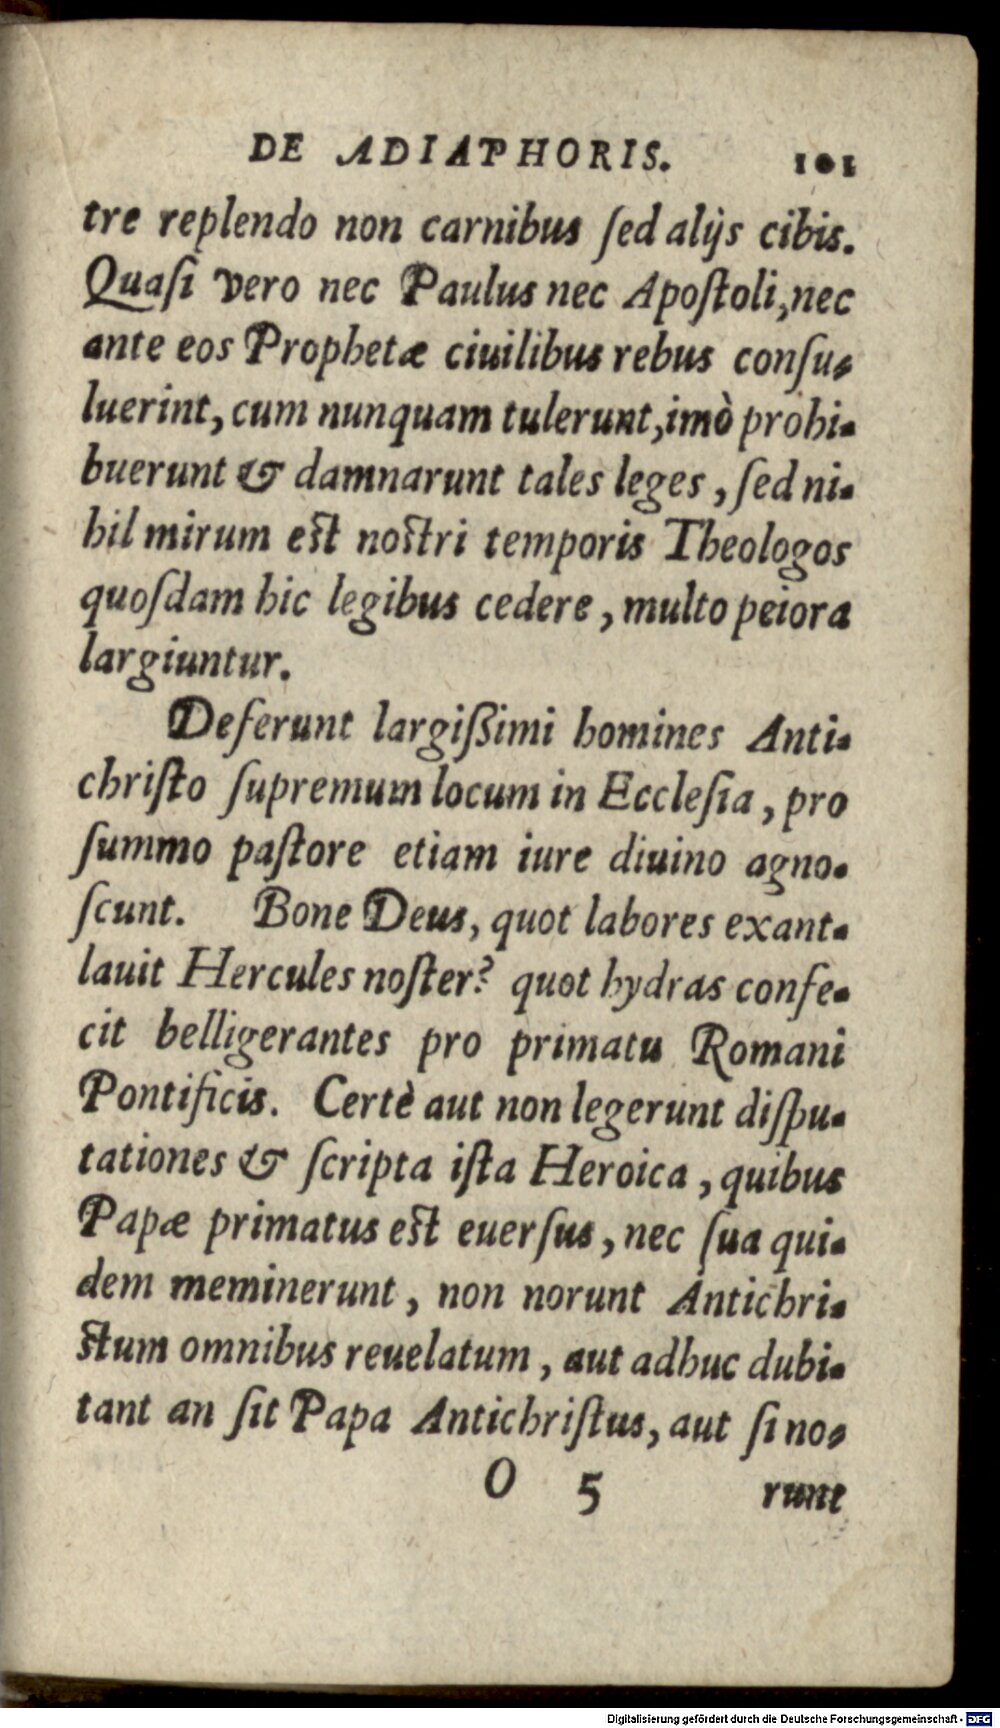 DE ADIAPHORIS. 101
tre replendo non carnibus ſed alijs cibis.
Quaſi vero nec Paulus nec Apoſtoli, nec
ante eos Prophetæ ciuilibus rebus conſu-
luerint, cum nunquam tulerunt, imò prohi-
buerunt & damnarunt tales leges, ſed ni-
hil mirum eſt noſtri temporis Theologos
quoſdam hic legibus cedere, multo peiora
largiuntur.
Deferunt largiſſimi homines Anti-
chriſto ſupremum locum in Eccleſia, pro
ſummo paſtore etiam iure diuino agno-
ſcunt. Bone Deus, quot labores exant-
lauit Hercules noſter? quot hydras confe-
cit belligerantes pro primatu Romani
Pontificis. Certè aut non legerunt diſpu-
tationes & ſcripta iſta Heroica, quibus
Papæ primatus eſt euerſus, nec ſua qui-
dem meminerunt, non norunt Antichri-
ſtum omnibus reuelatum, aut adhuc dubi-
tant an ſit Papa Antichriſtus, aut ſi no-
O 5 runt
Digitalisierung gefördert durch die Deutsche Forschungsgemeinschaft - DFG